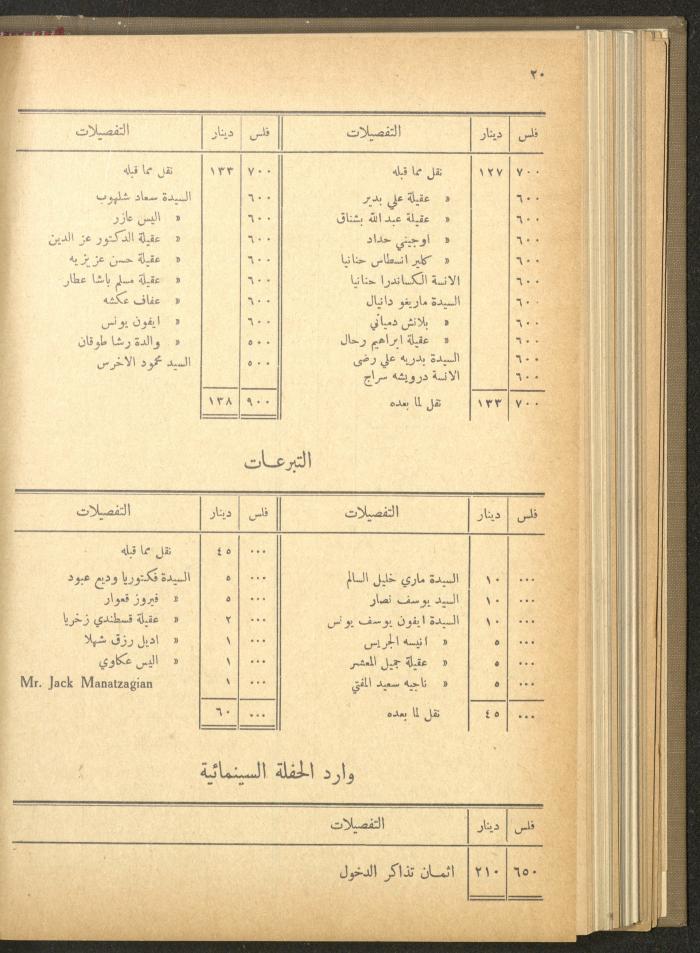 ٢٠
فلس دينار التفصيلات فلس دينار التفصيلات
٧٠٠ ١٢٧ نقل مما قبله
٦٠٠ « عقيلة علي بدير
٦٠٠ « عقيلة عبد الله بشناق
٦٠٠ « اوجيني حداد
٦٠٠ « كلير انسطاس حنانيا
٦٠٠ الانسة الكساندرا حنانيا
٦٠٠ السيدة ماريغو دانيال
٦٠٠ « بلانش دمياني
٦٠٠ « عقيلة ابراهيم رحال
٦٠٠ السيدة بدريه علي رضى
٦٠٠ الانسة درويشه سراج
٧٠٠ ١٣٣ نقل لما بعده
٧٠٠ ١٣٣ نقل مما قبله
٦٠٠ السيدة سعاد شلهوب
٦٠٠ « اليس عازر
٦٠٠ « عقيلة الدكتور عز الدين
٦٠٠ « عقيلة حسن عزيزيه
٦٠٠ « عقيلة مسلم باشا عطار
٦٠٠ « عفاف عكشه
٦٠٠ « ايفون يونس
٥٠٠ « والدة رشا طوقان
٥٠٠ السيد محمود الاخرس
٩٠٠ ١٣٨
التبرعات
فلس دينار التفصيلات فلس دينار التفصيلات
٠٠٠ ١٠ السيدة ماري خليل السالم
٠٠٠ ١٠ السيد يوسف نصار
٠٠٠ ١٠ السيدة ايفون يوسف يونس
٠٠٠ ٥ « انيسه الجريس
٠٠٠ ٥ « عقيلة جميل المعشر
٠٠٠ ٥ « ناجيه سعيد المفتي
٠٠٠ ٤٥ نقل لما بعده
٠٠٠ ٤٥ نقل مما قبله
٠٠٠ ٥ السيدة فكتوريا وديع عبود
٠٠٠ ٥ « فيروز قعوار
٠٠٠ ٢ « عقيلة قسطندي زخريا
٠٠٠ ١ « اديل رزق شهلا
٠٠٠ ١ « اليس عكاوي
٠٠٠ ١ Mr. Jack Manatzagian
٠٠٠ ٦٠
وارد الحفلة السينمائية
فلس دينار التفصيلات
٦٥٠ ٢١٠ اثمان تذاكر الدخول